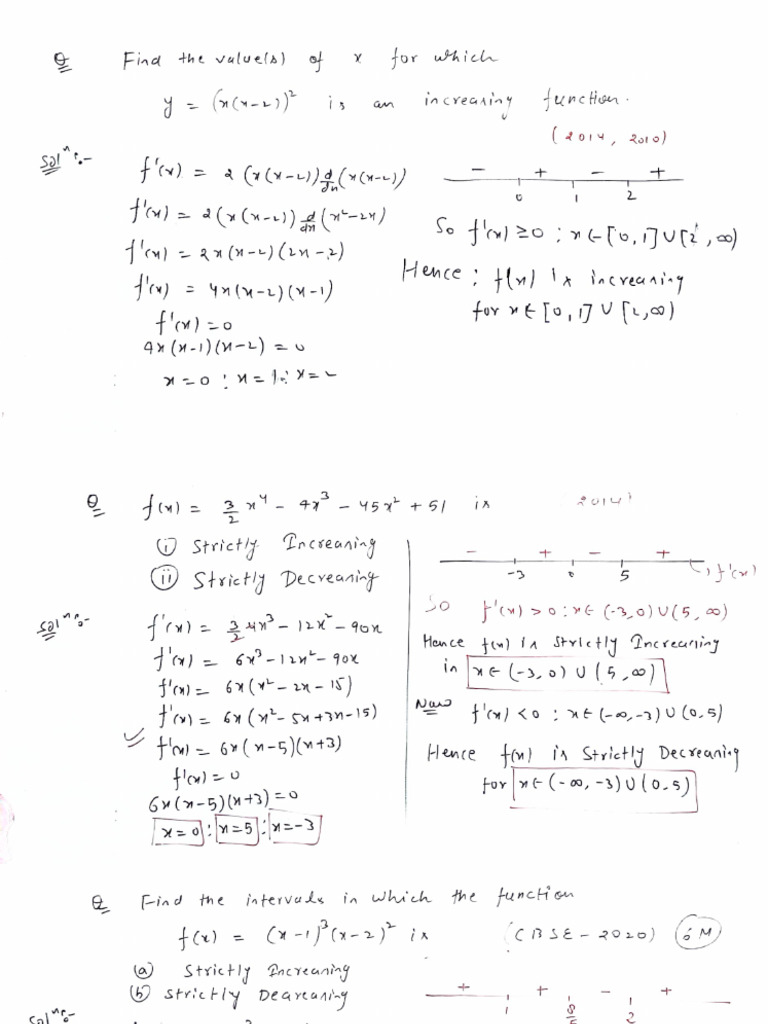 Q Find the value(s) of x for which
y = (x(x-2))² is an increasing function.
(2014, 2010)
Solⁿ:-
f'(x) = 2(x(x-2)) d/dx (x(x-2))
f'(x) = 2(x(x-2)) d/dx (x²-2x)
f'(x) = 2x(x-2)(2x-2)
f'(x) = 4x(x-2)(x-1)
f'(x) = 0
4x(x-1)(x-2) = 0
x = 0 ; x = 1 ; x = 2
- + - +
0 1 2
So f'(x) ≥ 0 ; x ∈ [0,1] ∪ [2, ∞)
Hence ; f(x) is increasing
for x ∈ [0,1] ∪ [2,∞)
Q f(x) = 3/2 x⁴ - 4x³ - 45x² + 51 is 2014
(i) Strictly Increasing
(ii) Strictly Decreasing
Solⁿ:-
f'(x) = 3/2 4x³ - 12x² - 90x
f'(x) = 6x³ - 12x² - 90x
f'(x) = 6x(x² - 2x - 15)
f'(x) = 6x(x² - 5x + 3x - 15)
f'(x) = 6x(x-5)(x+3)
f'(x) = 0
6x(x-5)(x+3) = 0
x = 0 ; x = 5 ; x = -3
- + - +
-3 0 5 f'(x)
So f'(x) > 0 ; x ∈ (-3,0) ∪ (5, ∞)
Hence f(x) is Strictly Increasing
in x ∈ (-3,0) ∪ (5,∞)
Now f'(x) < 0 ; x ∈ (-∞,-3) ∪ (0,5)
Hence f(x) is Strictly Decreasing
for x ∈ (-∞,-3) ∪ (0,5)
Q Find the intervals in which the function
f(x) = (x-1)³(x-2)² is (CBSE-2020) 6M
(a) Strictly Increasing
(b) Strictly Decreasing
+ + - +
1 8/5 2
Solⁿ:-